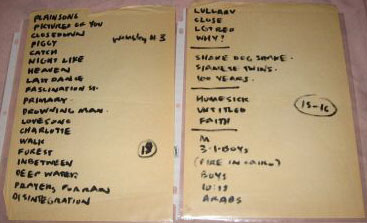 PLAINSONG
PICTURES OF YOU
CLOSEDOWN
WEMBLEY #3
PIGGY
CATCH
NIGHT LIKE
HEAVEN
LAST DANCE
FASCINATION ST.
PRIMARY.
DROWNING MAN.
LOVESONG
CHARLOTTE
WALK
FOREST
INBETWEEN
DEEP WATER.
PRAYERS FOR RAIN
DISINTEGRATION
LULLABY
CLOSE
WHY?
SHAKE DOG SHAKE.
SIAMESE TWINS.
100 YEARS.
HOMESICK
UNTITLED
FAITH
15-16
M
3-I-BOYS
(FIRE IN CAIRO)
BOYS
10:15
ARABS